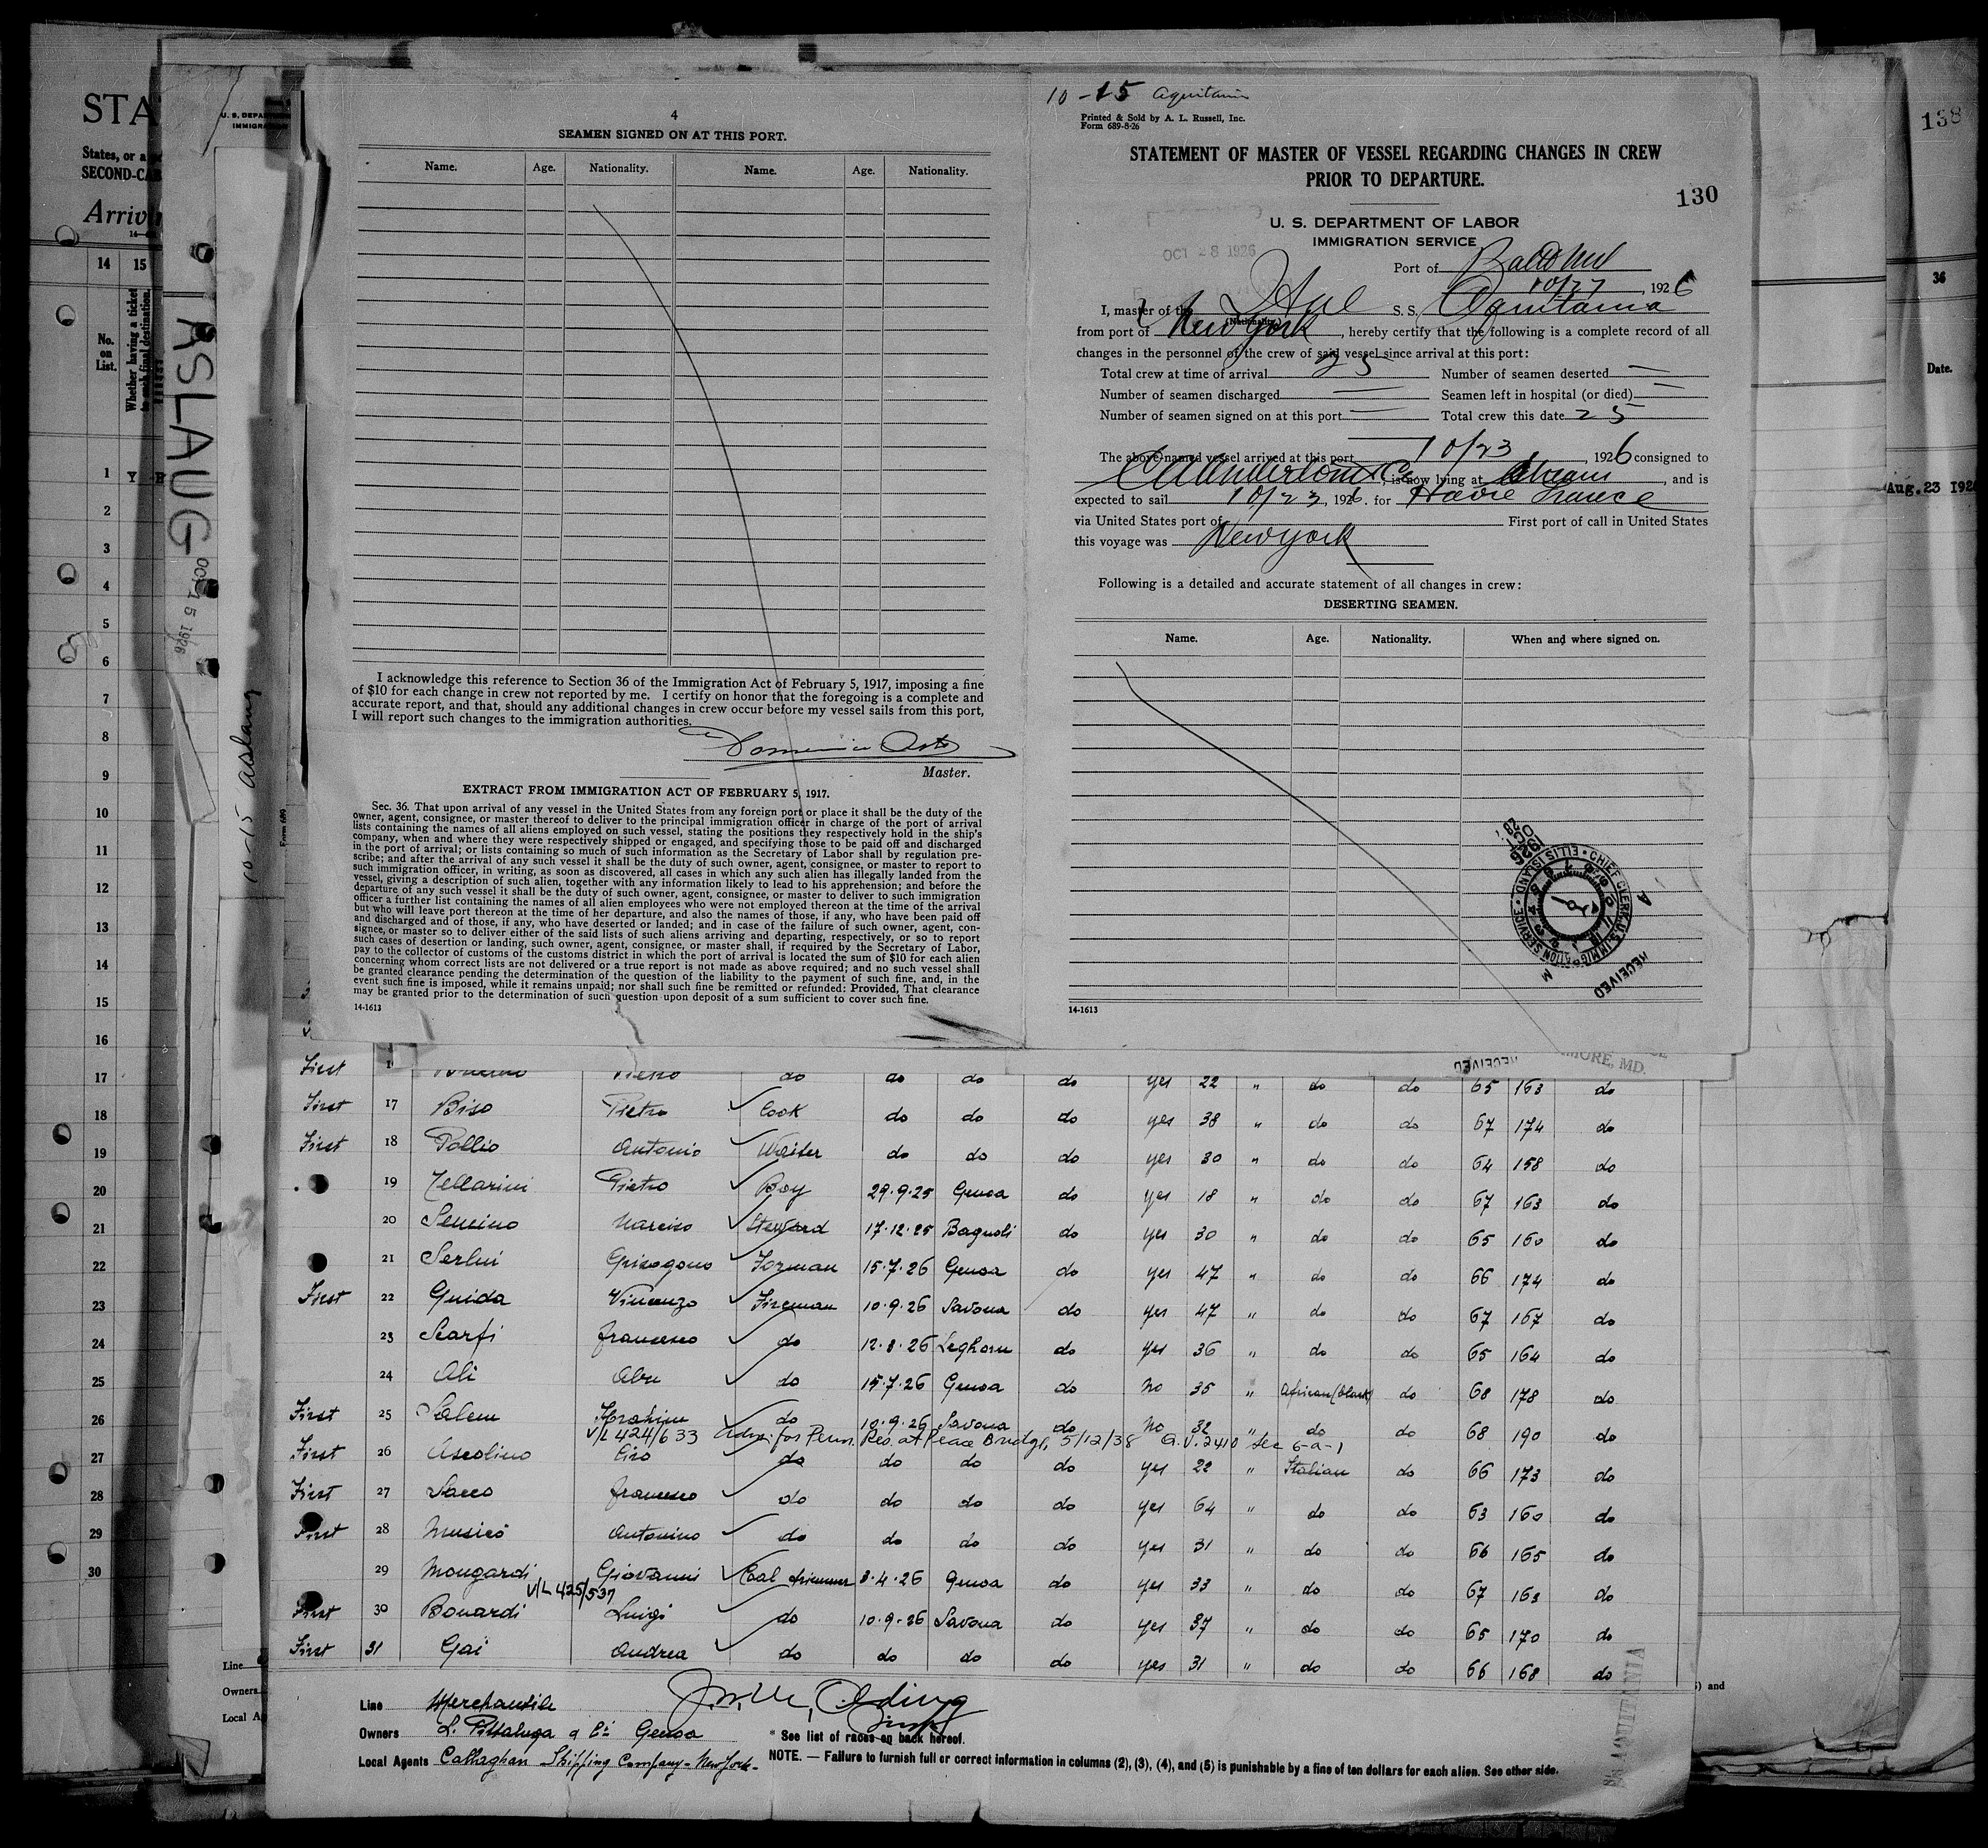 138
36
Date.
Aug. 23 192
STA
States, or a
SECOND-CA
Arriv
14 15
No.
on
List.
Whether having a ticket
to such final destination.
1 Y
2
3
4
5
6
7
8
9
10
11
12
13
14
15
16
17
18
19
20
21
22
23
24
25
26
27
28
29
30
U. S. DEPA
IMMIGRA
ASLAUG
OCT 15 1926
10-15 Aslaug
Form 689
Line
Owners
Local A
4
SEAMEN SIGNED ON AT THIS PORT.
Name. Age. Nationality. Name. Age. Nationality.
I acknowledge this reference to Section 36 of the Immigration Act of February 5, 1917, imposing a fine
of $10 for each change in crew not reported by me. I certify on honor that the foregoing is a complete and
accurate report, and that, should any additional changes in crew occur before my vessel sails from this port,
I will report such changes to the immigration authorities.
Master.
EXTRACT FROM IMMIGRATION ACT OF FEBRUARY 5, 1917.
Sec. 36. That upon arrival of any vessel in the United States from any foreign port or place it shall be the duty of the
owner, agent, consignee, or master thereof to deliver to the principal immigration officer in charge of the port of arrival
lists containing the names of all aliens employed on such vessel, stating the positions they respectively hold in the ship's
company, when and where they were respectively shipped or engaged, and specifying those to be paid off and discharged
in the port of arrival; or lists containing so much of such information as the Secretary of Labor shall by regulation pre-
scribe; and after the arrival of any such vessel it shall be the duty of such owner, agent, consignee, or master to report to
such immigration officer, in writing, as soon as discovered, all cases in which any such alien has illegally landed from the
vessel, giving a description of such alien, together with any information likely to lead to his apprehension; and before the
departure of any such vessel it shall be the duty of such owner, agent, consignee, or master to deliver to such immigration
officer a further list containing the names of all alien employees who were not employed thereon at the time of the arrival
but who will leave port thereon at the time of her departure, and also the names of those, if any, who have been paid off
and discharged and of those, if any, who have deserted or landed; and in case of the failure of such owner, agent, con-
signee, or master so to deliver either of the said lists of such aliens arriving and departing, respectively, or so to report
such cases of desertion or landing, such owner, agent, consignee, or master shall, if required by the Secretary of Labor,
pay to the collector of customs of the customs district in which the port of arrival is located the sum of $10 for each alien
concerning whom correct lists are not delivered or a true report is not made as above required; and no such vessel shall
be granted clearance pending the determination of the question of the liability to the payment of such fine, and, in the
event such fine is imposed, while it remains unpaid; nor shall such fine be remitted or refunded: Provided, That clearance
may be granted prior to the determination of such question upon deposit of a sum sufficient to cover such fine.
14-1613
10-15 Aquitania
Printed & Sold by A. L. Russell, Inc.
Form 689-8-26
STATEMENT OF MASTER OF VESSEL REGARDING CHANGES IN CREW
PRIOR TO DEPARTURE.
130
U. S. DEPARTMENT OF LABOR
IMMIGRATION SERVICE
OCT 28 1926
Port of Balto Md
10/27, 1926
I, master of the Ital S. S. Aquitania
(Nationality)
from port of New York, hereby certify that the following is a complete record of all
changes in the personnel of the crew of said vessel since arrival at this port:
Total crew at time of arrival 25 Number of seamen deserted —
Number of seamen discharged — Seamen left in hospital (or died) —
Number of seamen signed on at this port — Total crew this date 25
The above-named vessel arrived at this port 10/23, 1926 consigned to
, is now lying at Stream, and is
expected to sail 10/23, 1926. for Havre France
via United States port of First port of call in United States
this voyage was New York
Following is a detailed and accurate statement of all changes in crew:
DESERTING SEAMEN.
Name. Age. Nationality. When and where signed on.
1926 OCT 28
CHIEF CLERK, U.S. IMMIGRATION SERVICE • ELLIS ISLAND.
RECEIVED
14-1613
RECEIVED MORE, MD.
First do do do do yes 22 " do do 65 163 do
First 17 Biso Pietro Cook do do do yes 38 " do do 67 174 do
First 18 Pollio Antonio Waiter do do do yes 30 " do do 64 158 do
19 Zellarini Pietro Boy 29.9.25 Genoa do yes 18 " do do 67 163 do
20 Sencino Narciso Steward 17.12.25 Bagnoli do yes 30 " do do 65 160 do
21 Serlui Grisogono Forman 15.7.26 Genoa do yes 47 " do do 66 174 do
First 22 Guida Vincenzo Fireman 10.9.26 Savona do yes 47 " do do 67 167 do
23 Scarfi Francesco do 12.8.26 Leghorn do yes 36 " do do 65 164 do
24 Ali Abu do 15.7.26 Genoa do No 35 " African (black) do 68 178 do
First 25 Salem Ibrahim do 10.9.26 Savona do No 32 " do do 68 190 do
V/L 424/633 Adm. for Perm. Res. at Peace Bridge, 5/12/38 Q.V. 2410 Sec 6-a-1
First 26 Ascolino Ciro do do do do yes 22 " Italian do 66 173 do
First 27 Sacco Francesco do do do do yes 64 " do do 63 160 do
First 28 Musicò Antonino do do do do yes 31 " do do 66 165 do
29 Mongardi Giovanni Coal trimmer 3.4.26 Genoa do yes 33 " do do 67 163 do
V/L 425/537
First 30 Bonardi Luigi do 10.9.26 Savona do yes 37 " do do 65 170 do
First 31 Gai Andrea do do do do yes 31 " do do 66 168 do
Line Merchantile
Owners L. Pittaluga & Ci Genoa
* See list of races on back hereof.
Local Agents Callaghan Shipping Company - New York -
NOTE. — Failure to furnish full or correct information in columns (2), (3), (4), and (5) is punishable by a fine of ten dollars for each alien. See other side.
S/S AQUITANIA
) and